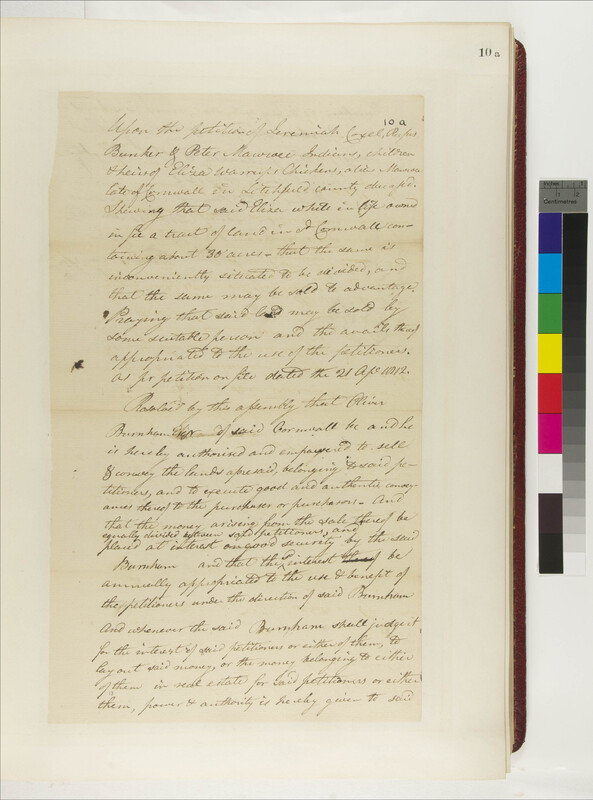 10 a
10 a
Upon the petition of Jeremiah Coxel, Rufus
Bunker & Peter Mawwee Indians, children
& heirs of Eliza Warrups Chickens, alias Mawwee
late of Cornwall in Litchfield County deceased.
Shewing that said Eliza while in life owned
in fee a tract of land in sd Cornwall con-
taining about 30 acres - that the same is
inconveniently situated to be divided, and
that the same may be sold to advantage.
Praying that said land may be sold by
some suitable person and the avails thereof
appropriated to the use of the petitioners.
As pr petition on file dated the 21 Apl 1812.
Resolved by this assembly that Oliver
Burnham of said Cornwall be and he
is hereby authorised and empowered to sell
& convey the lands aforesaid, belonging to said pe-
titioners, and to execute good and authentic convey-
ances thereof to the purchaser or purchasers - And
that the money arising from the sale thereof be
equally divided between said petitioners, and
placed at interest on good security by the said
Burnham and that the interest be
annually appropriated to the use & benefit of
the petitioners under the direction of said Burnham
And whenever the said Burnham shall judge it
for the interest of said petitioners or either of them, to
lay out said money, or the money belonging to either
of them in real estate for said petitioners or either
them, power & authority is hereby given to said
Inches
Centimetres